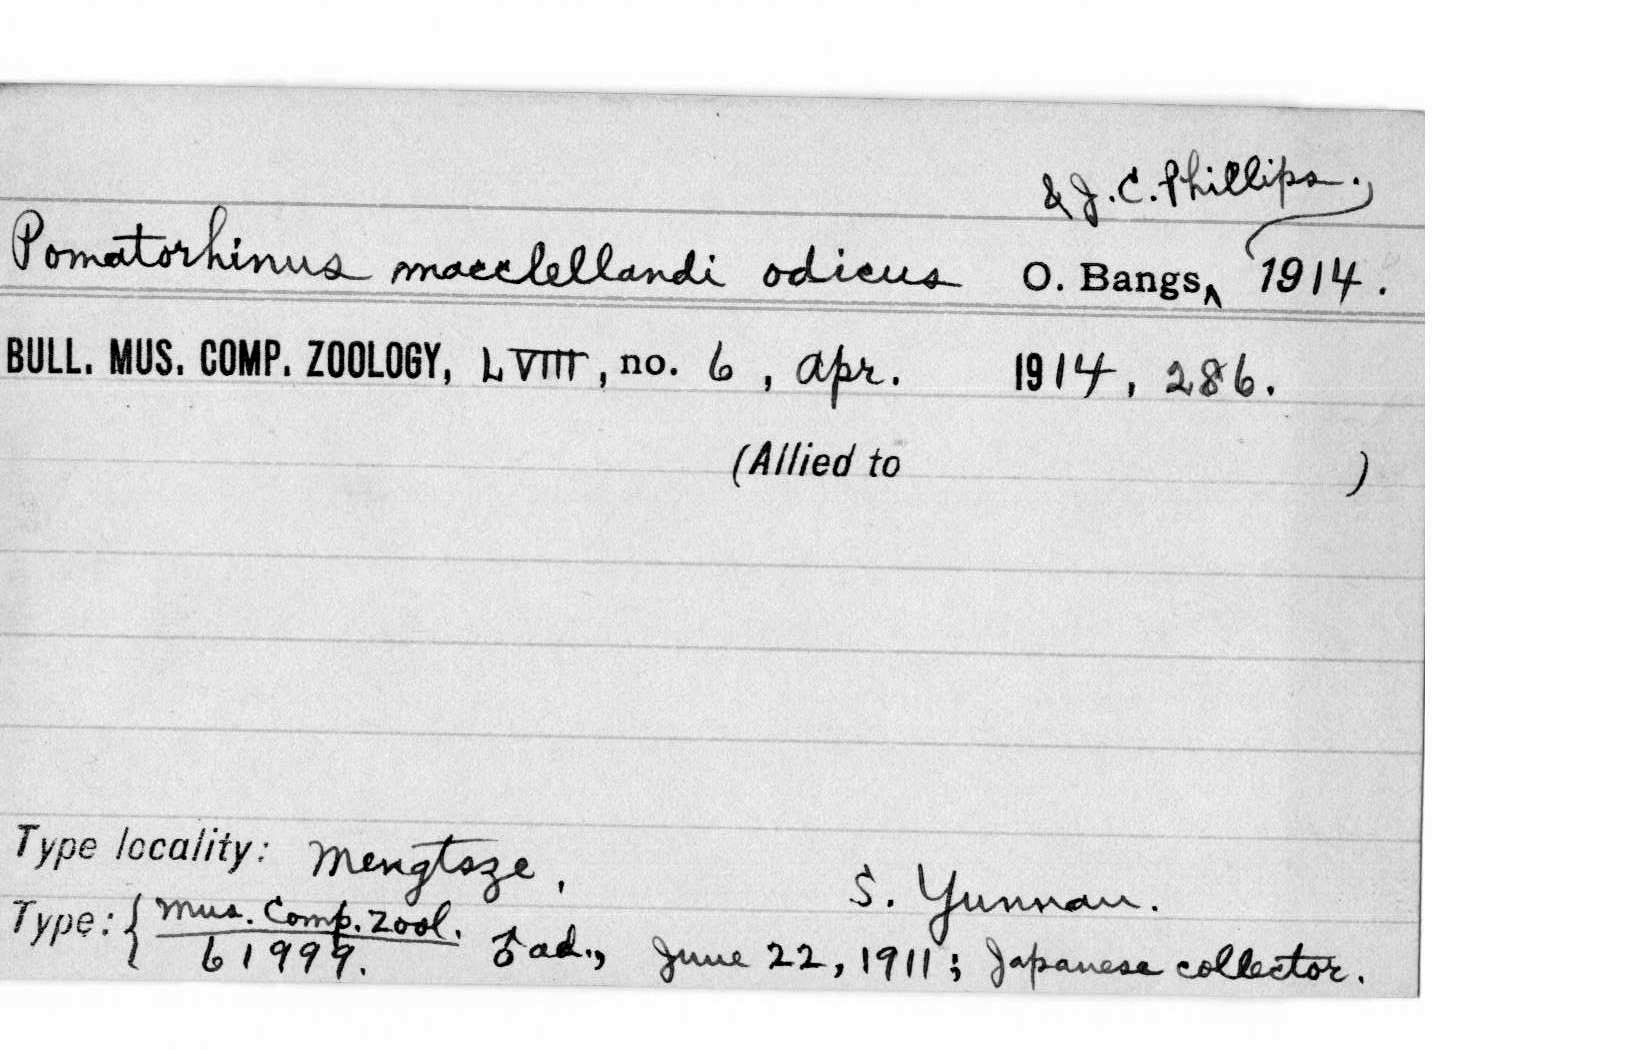 & J. C. Phillips.,
Pomatorhinus macclellandi odicus O. Bangs^ 1914.
BULL. MUS. COMP. ZOOLOGY, LVIII, no. 6, Apr. 1914, 286.
(Allied to )
Type locality: Mengtsze, S. Yunnan.
Type: { Mus. Comp. Zool.
61999. ♂ ad., June 22, 1911; Japanese collector.